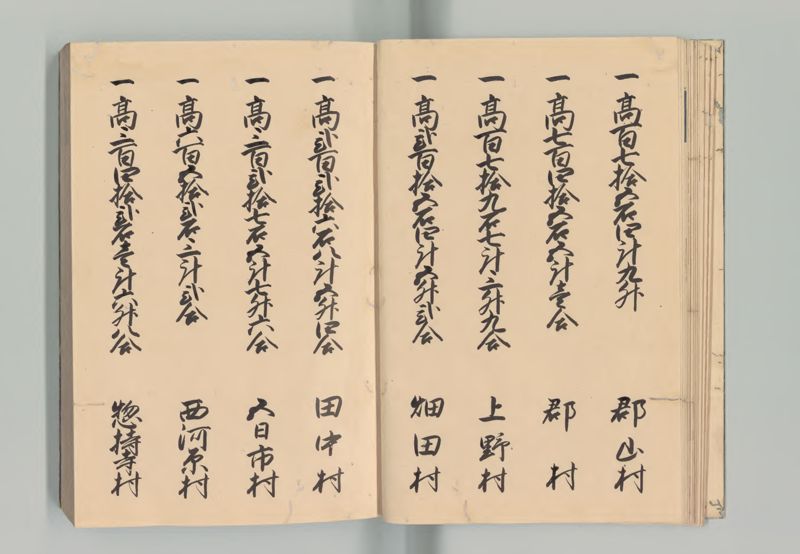 一高百七拾五石四斗九升　郡山村
一高七百四拾五石五斗壱合　郡村
一高百七拾九石七斗三升九合　上野村
一高弐百拾五石四斗五升弐合　畑田村
一高弐百弐拾六石八斗五升四合　田中村
一高三百弐拾七石五斗七升六合　五日市村
一高六百五拾弐石三斗弐合　西河原村
一高三百四拾弐石壱斗六升八合　惣持寺村